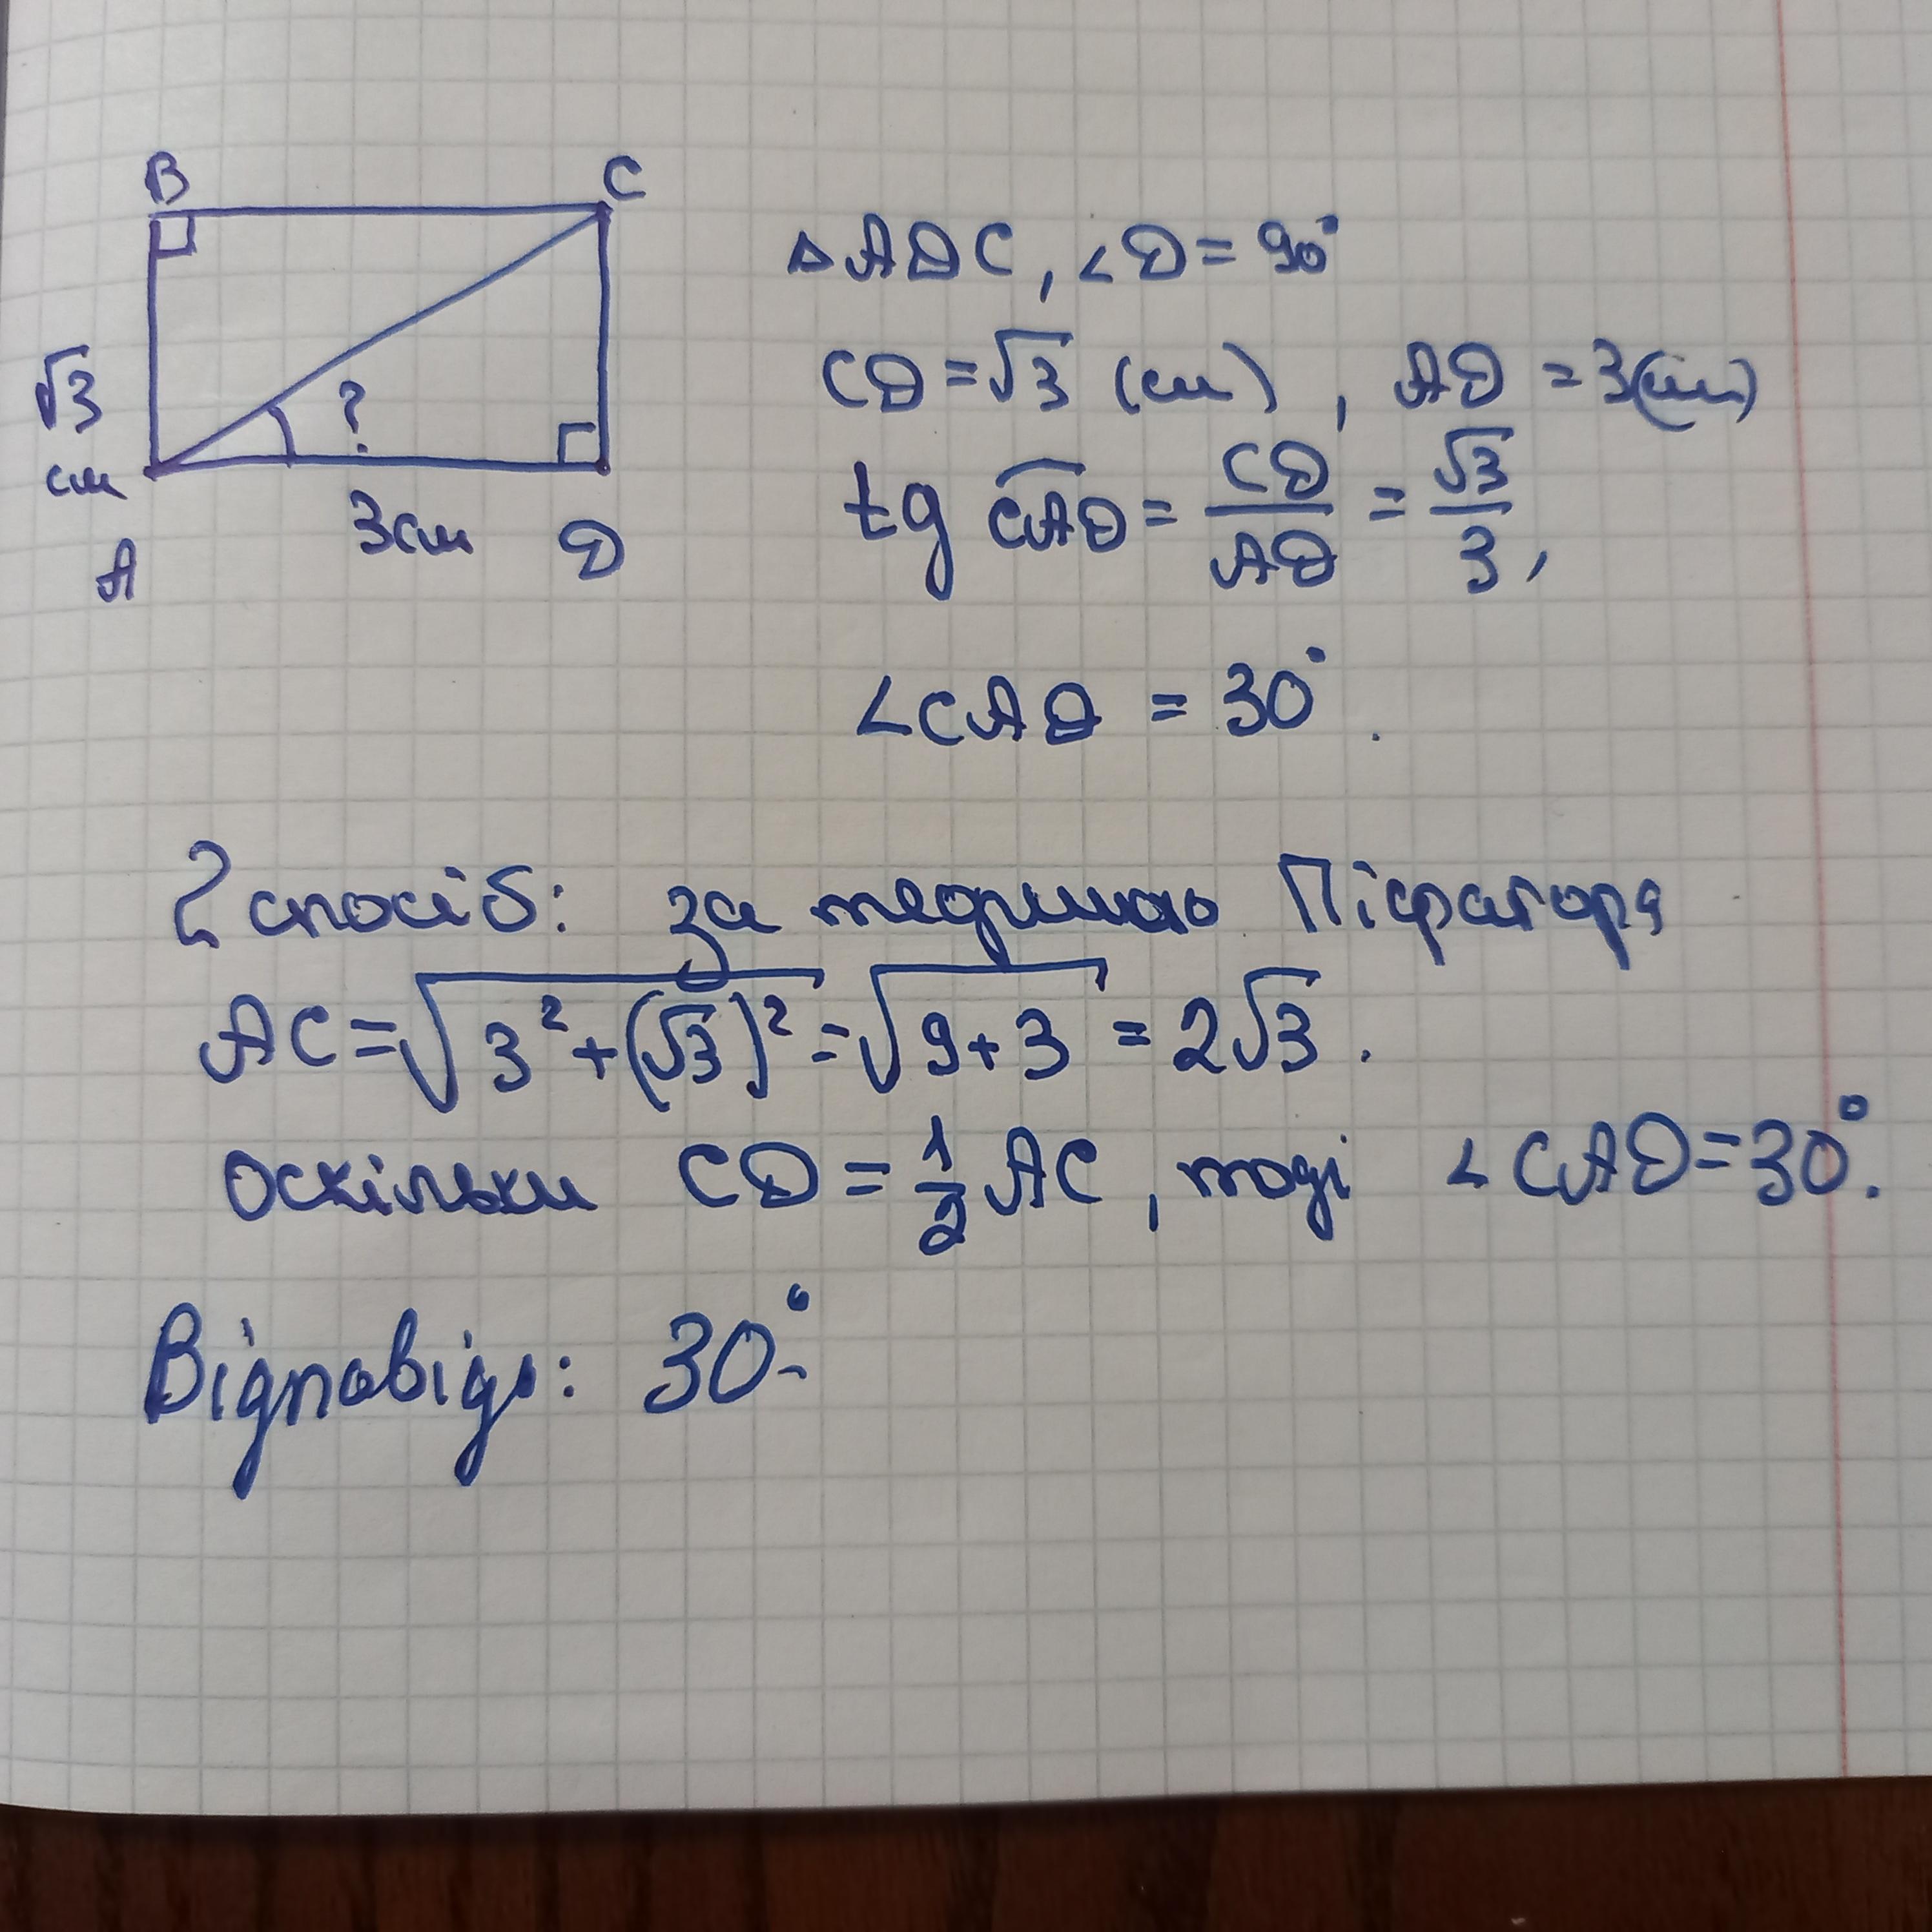 B C
√3
см
?
3см
A D
△ADC, ∠D = 90°
CD = √3 (см), AD = 3(см)
tg CAD = CD/AD = √3/3,
∠CAD = 30°.
2 спосіб: за теоремою Піфагора
AC = √(3² + (√3)²) = √(9+3) = 2√3.
Оскільки CD = 1/2 AC, тоді ∠CAD = 30°.
Відповідь: 30°.